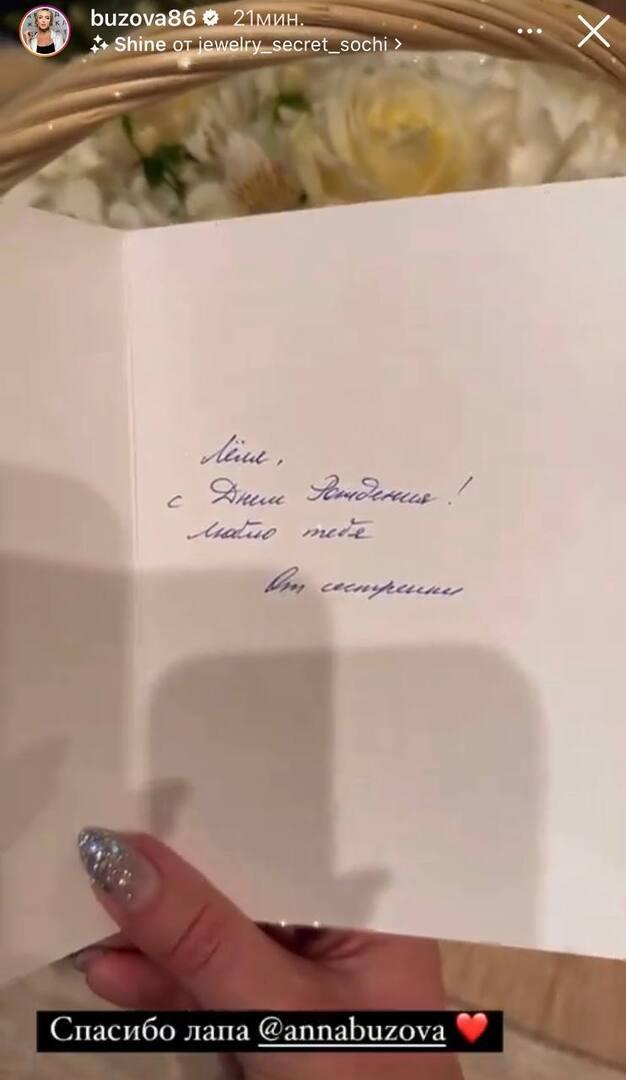 buzova86 21мин.
Shine от jewelry_secret_sochi >
Лёля,
с Днем Рождения!
Люблю тебя
От сестренки
Спасибо лапа @annabuzova ❤️